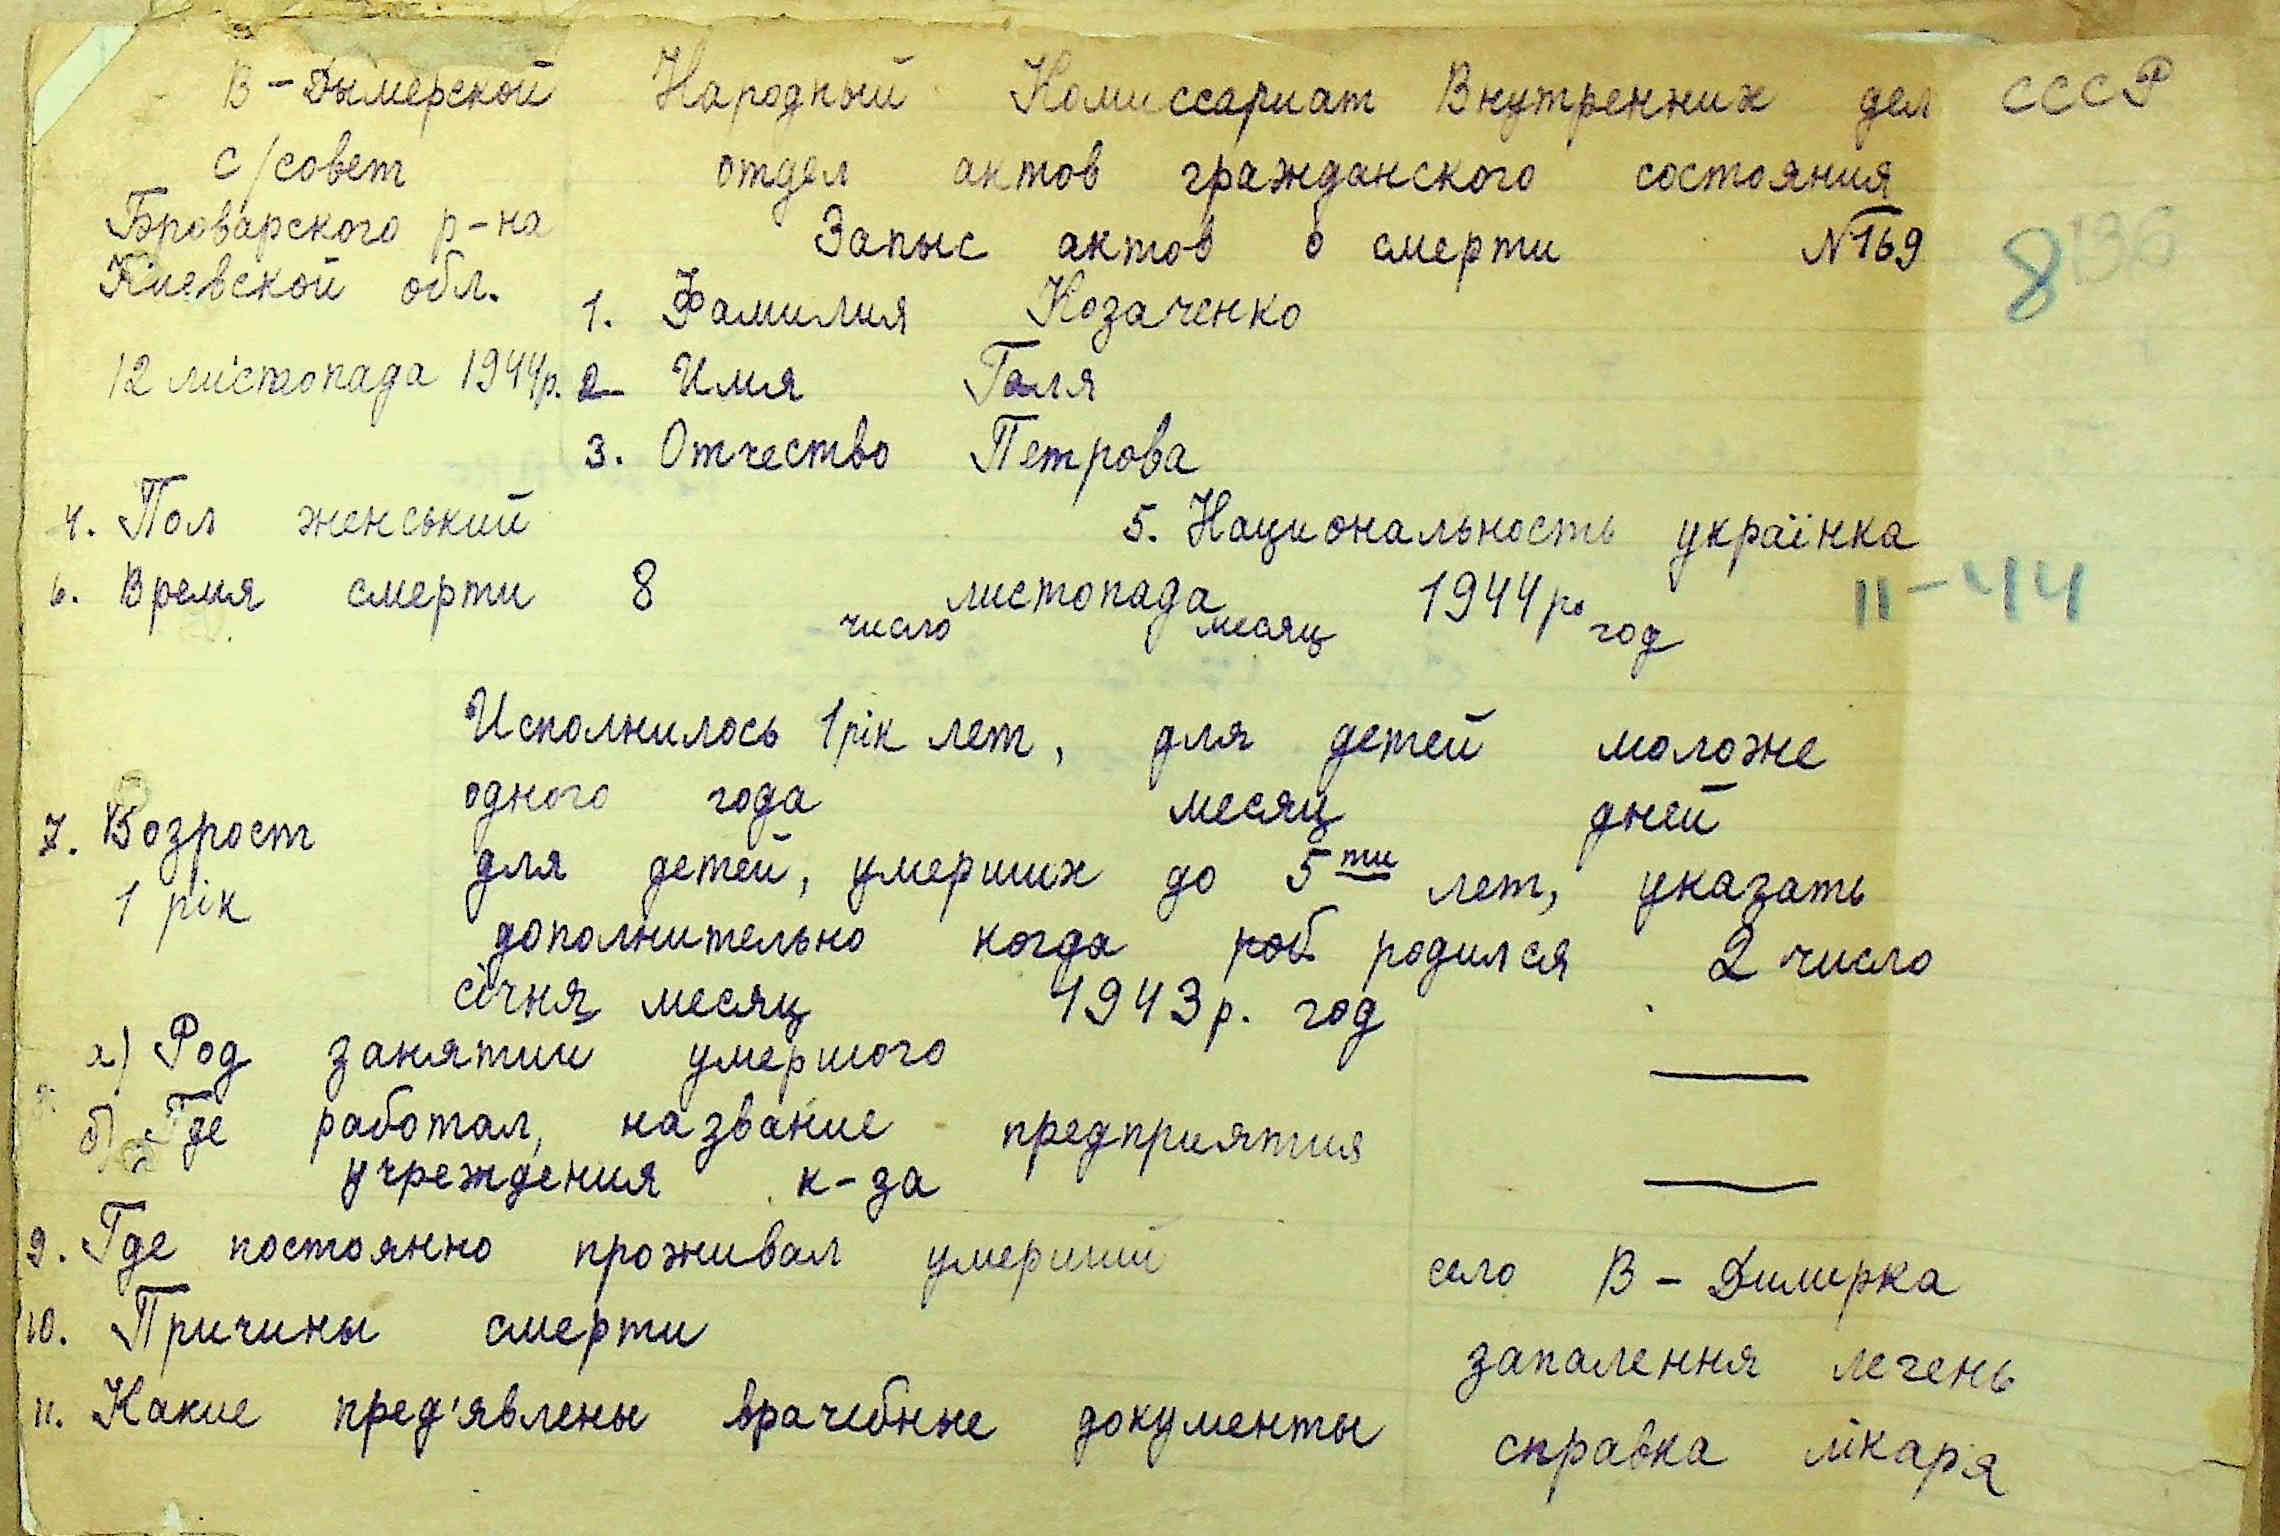 В-Дымерской Народный Комиссариат Внутренних дел СССР
с/совет отдел актов гражданского состояния
Броварского р-на Запыс актов о смерти №169
8 136
Киевской обл.
1. Фамилия Козаченко
12 листопада 1944р. 2 Имя Галя
3. Отчество Петрова
4. Пол женський 5. Национальность українка
6. Время смерти 8 листопада 1944р.
число месяц год
11-44
Исполнилось 1 рік лет, для детей моложе
одного года месяц дней
7. Возрост для детей, умерших до 5ти лет, указать
1 рік дополнительно когда роб родился 2 число
січня месяц 1943р. год
а) Род занятии умершого —
б) Где работал, название предприятия
учреждения к-за —
9. Где постоянно проживал умерший село В-Димирка
10. Причины смерти запалення легень
11. Какие пред'явлены врачебные документы справка лікаря